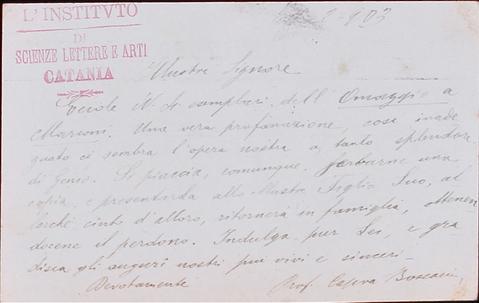 L'INSTITVTO
DI
SCIENZE LETTERE E ARTI
CATANIA
Illustre Signore
Eccole N. 4 complari dell' Omaggio a
Marconi. Una vera profanazione, così inade
guato ci sembra l'opera nostra a tanto splendore
di Genio. Le piaccia, comunque, serbarne una
copia, e presentarla allo Illustre Figlio Suo, al
lorchè cinto d'alloro, ritornerà in famiglia, otten
docene il perdono. Indulga pur Lei, e gra
disca gli auguri nostri più vivi e sinceri
Devotamente Prof.